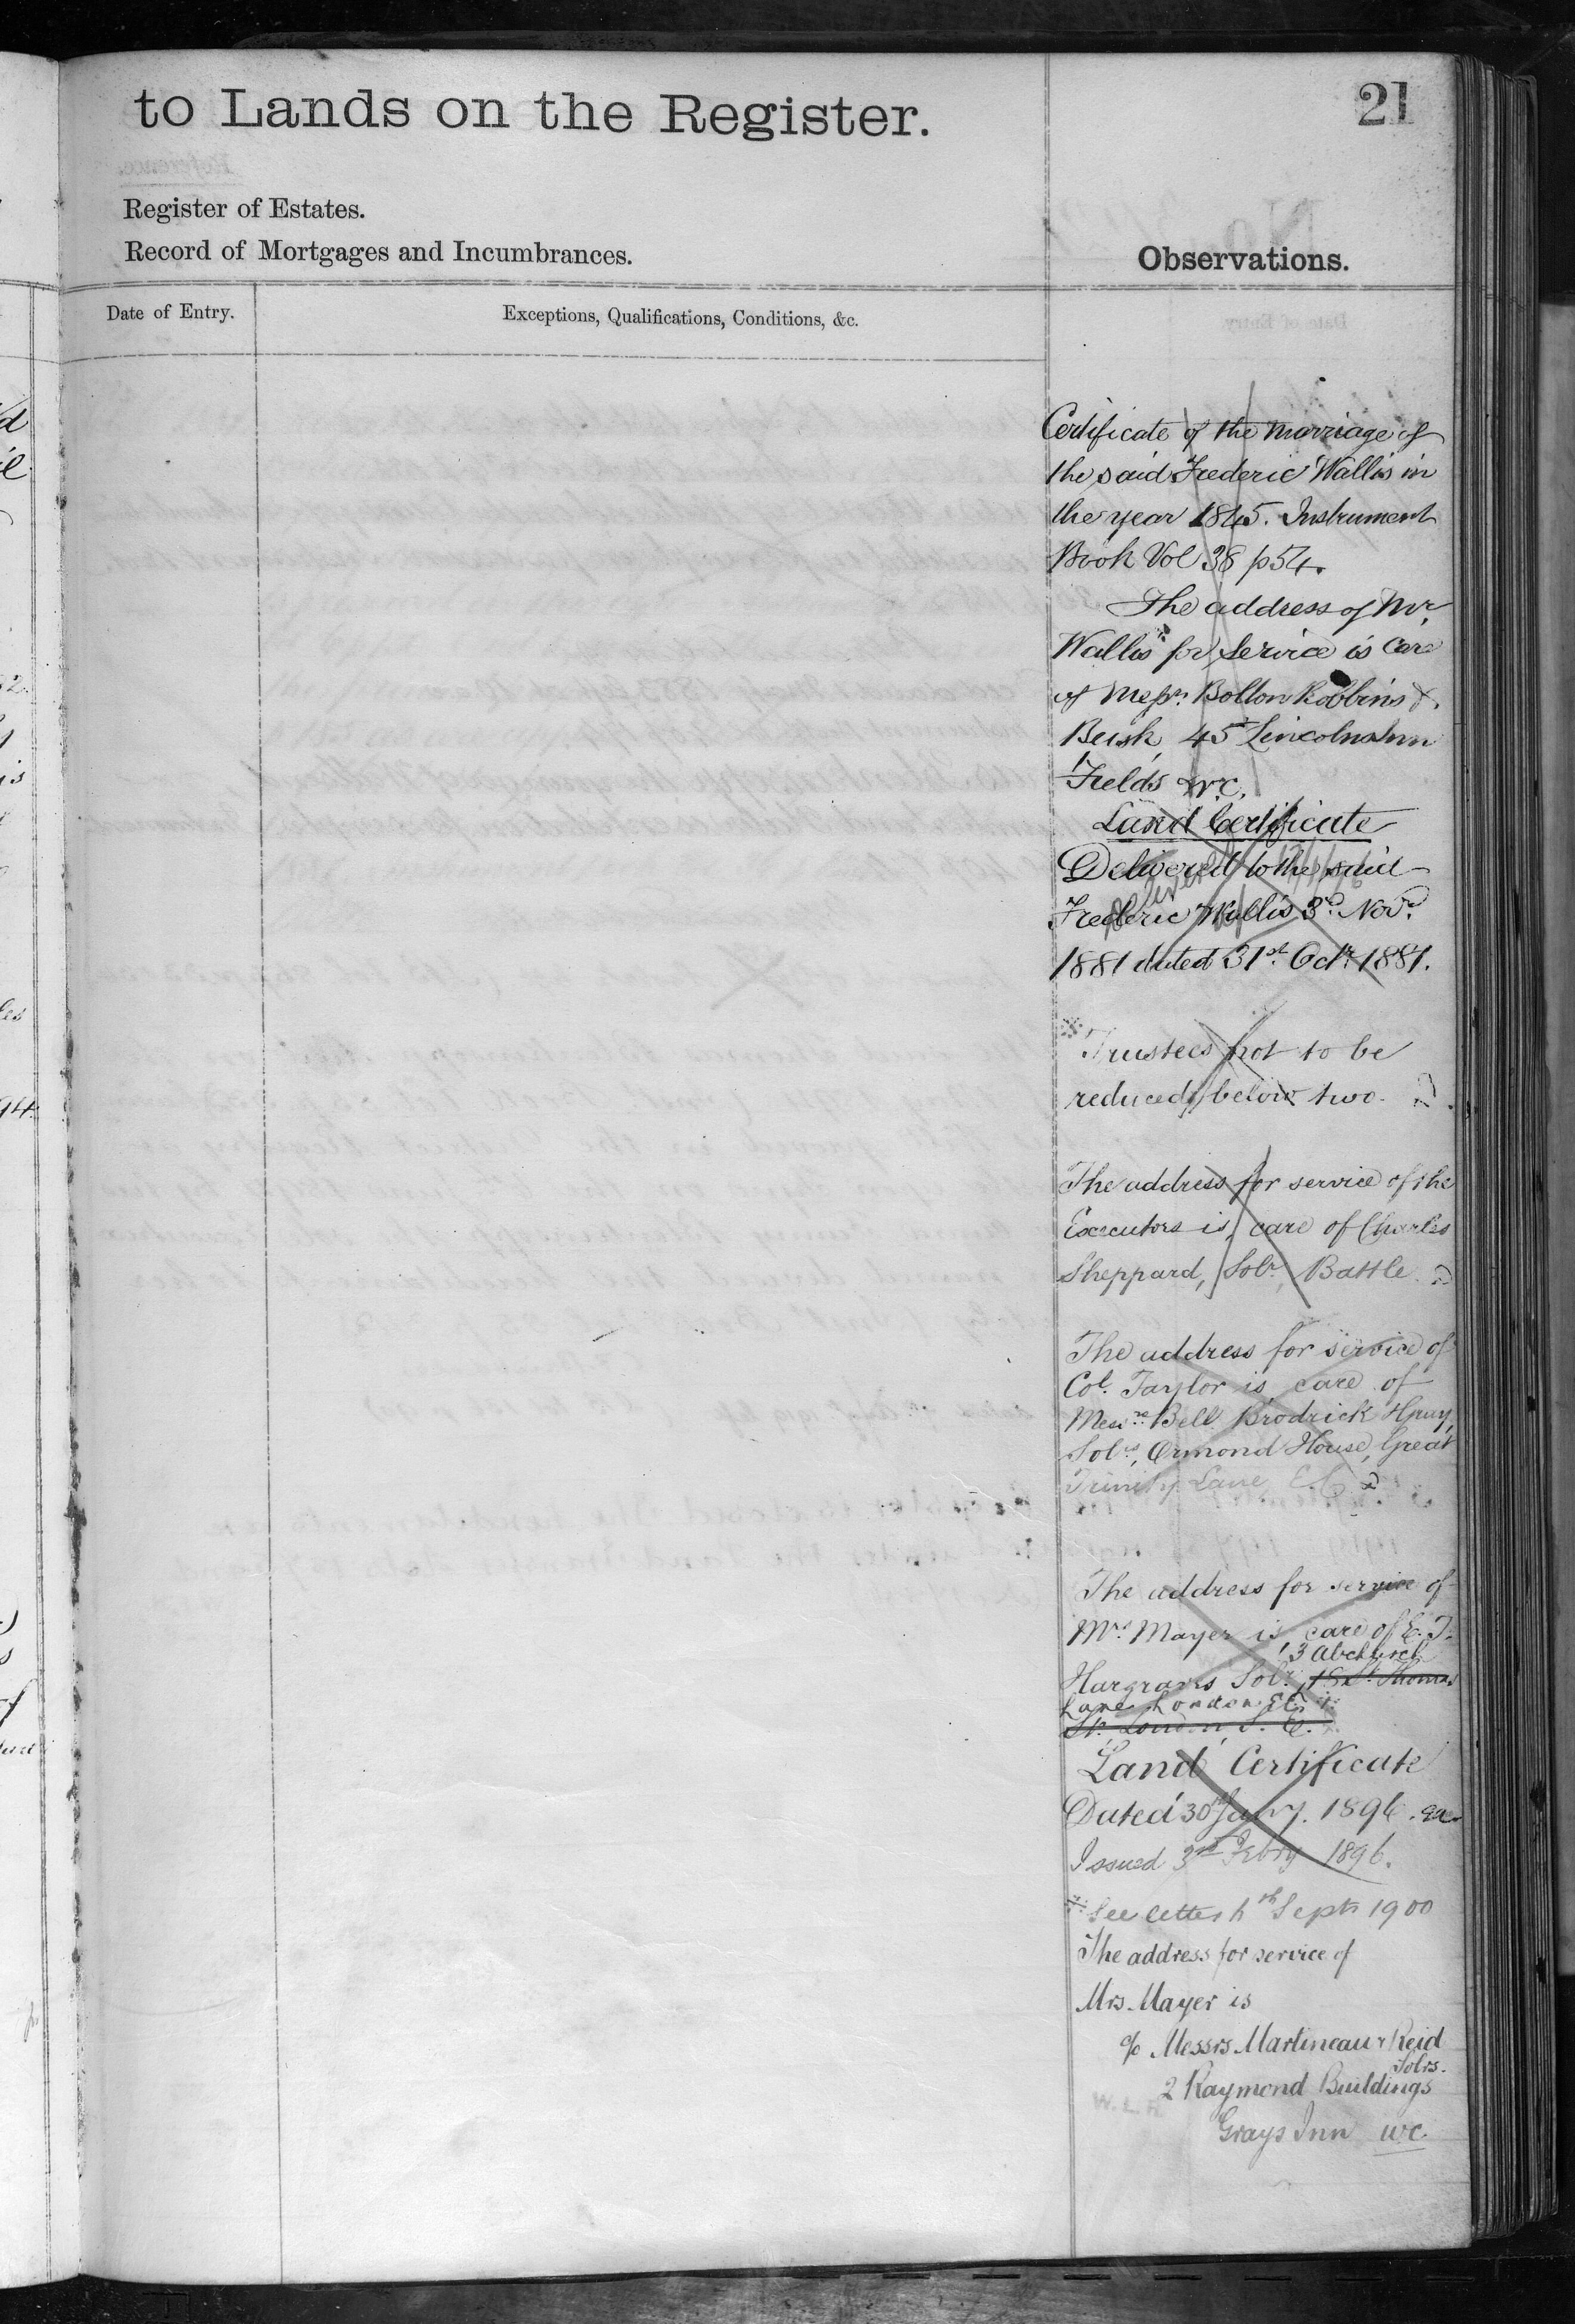 to Lands on the Register.
21
Register of Estates.
Record of Mortgages and Incumbrances.
Observations.
Date of Entry.
Exceptions, Qualifications, Conditions, &c.
Certificate of the Marriage of
the said Frederic Wallis in
the year 1845. Instrument
Book Vol 38 p 54.
The address of Mr.
Wallis for Service is Care
of Messrs. Bolton Robbins &
Busk, 45 Lincolns Inn
Fields W.C.
Land Certificate
Delivered to the said
Frederic Wallis 3rd. Novr.
1881 dated 31st. Octr. 1881.
Trustees not to be
reduced below two.
The address for service of the
Executors is, care of Charles
Sheppard, Solr. Battle.
The address for service of
Col. Taylor is, care of
Messrs. Bell Brodrick & Gray,
Solrs, Ormond House, Great
Trinity Lane E.C.
The address for service of
Mrs. Mayer is, care of E. T.
3 Abchurch
Hargraves Solr. St. Thomas
Lane London E.C.
St. London S.E.
Land Certificate
Dated 30th Jany. 1896.
Issued 3rd Febry 1896.
See letter Sept 1900
The address for service of
Mrs. Mayer is
c/o Messrs Martineau & Reid
Solrs.
2 Raymond Buildings
Grays Inn WC.